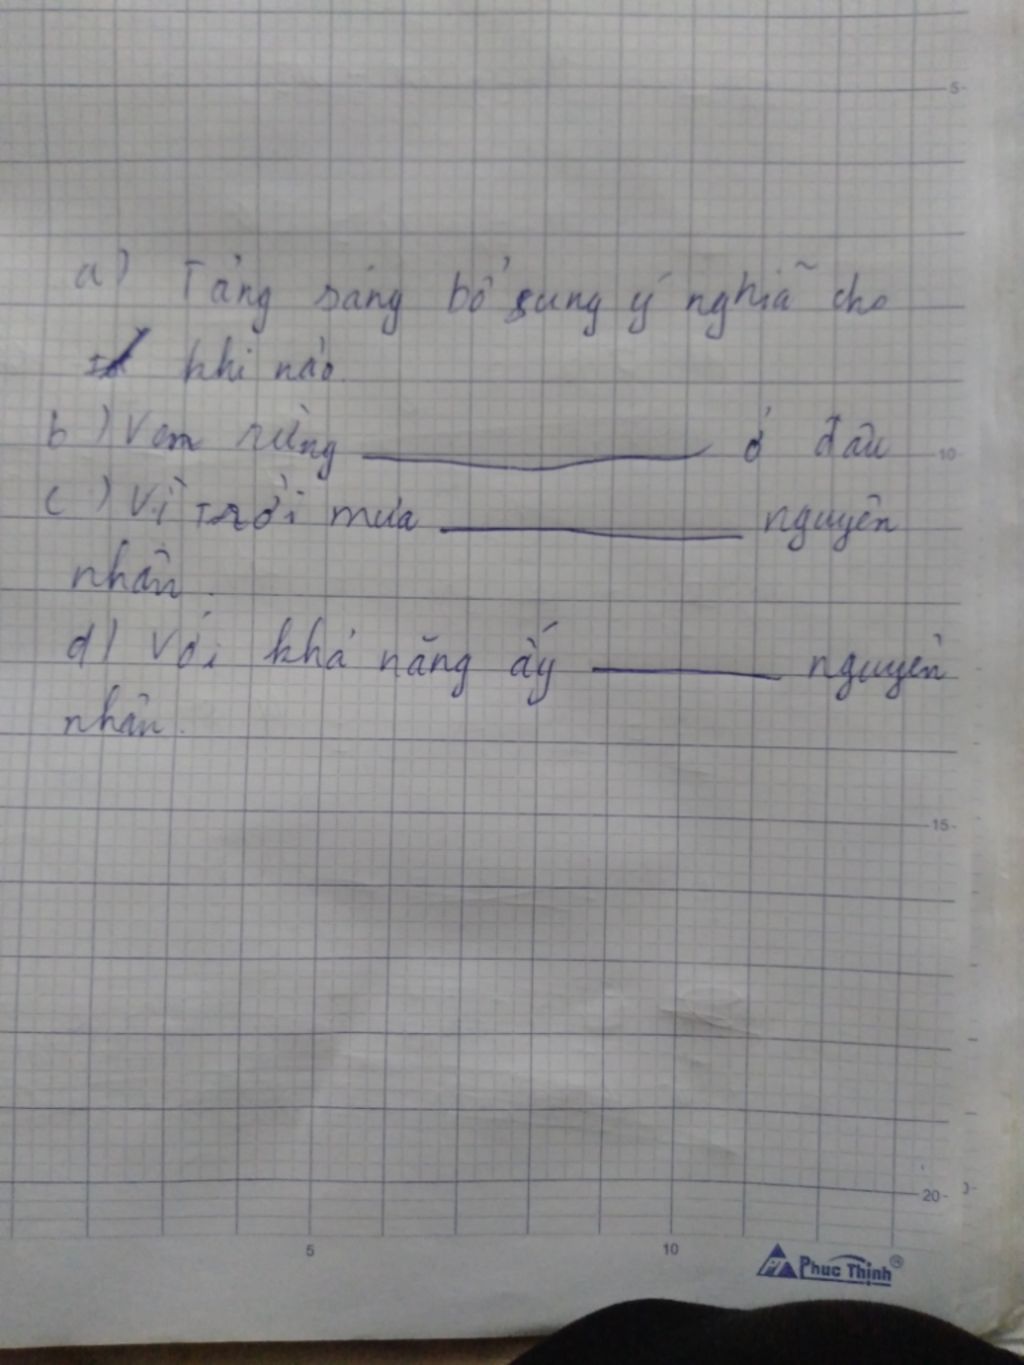 a) Tảng sáng bổ sung ý nghĩa cho
khi nào.
b) Ven rừng ở đâu
c) Vì trời mưa nguyên
nhân.
d) Với khả năng ấy nguyên
nhân.
5
10
15
20
5
10
Phuc Thinh